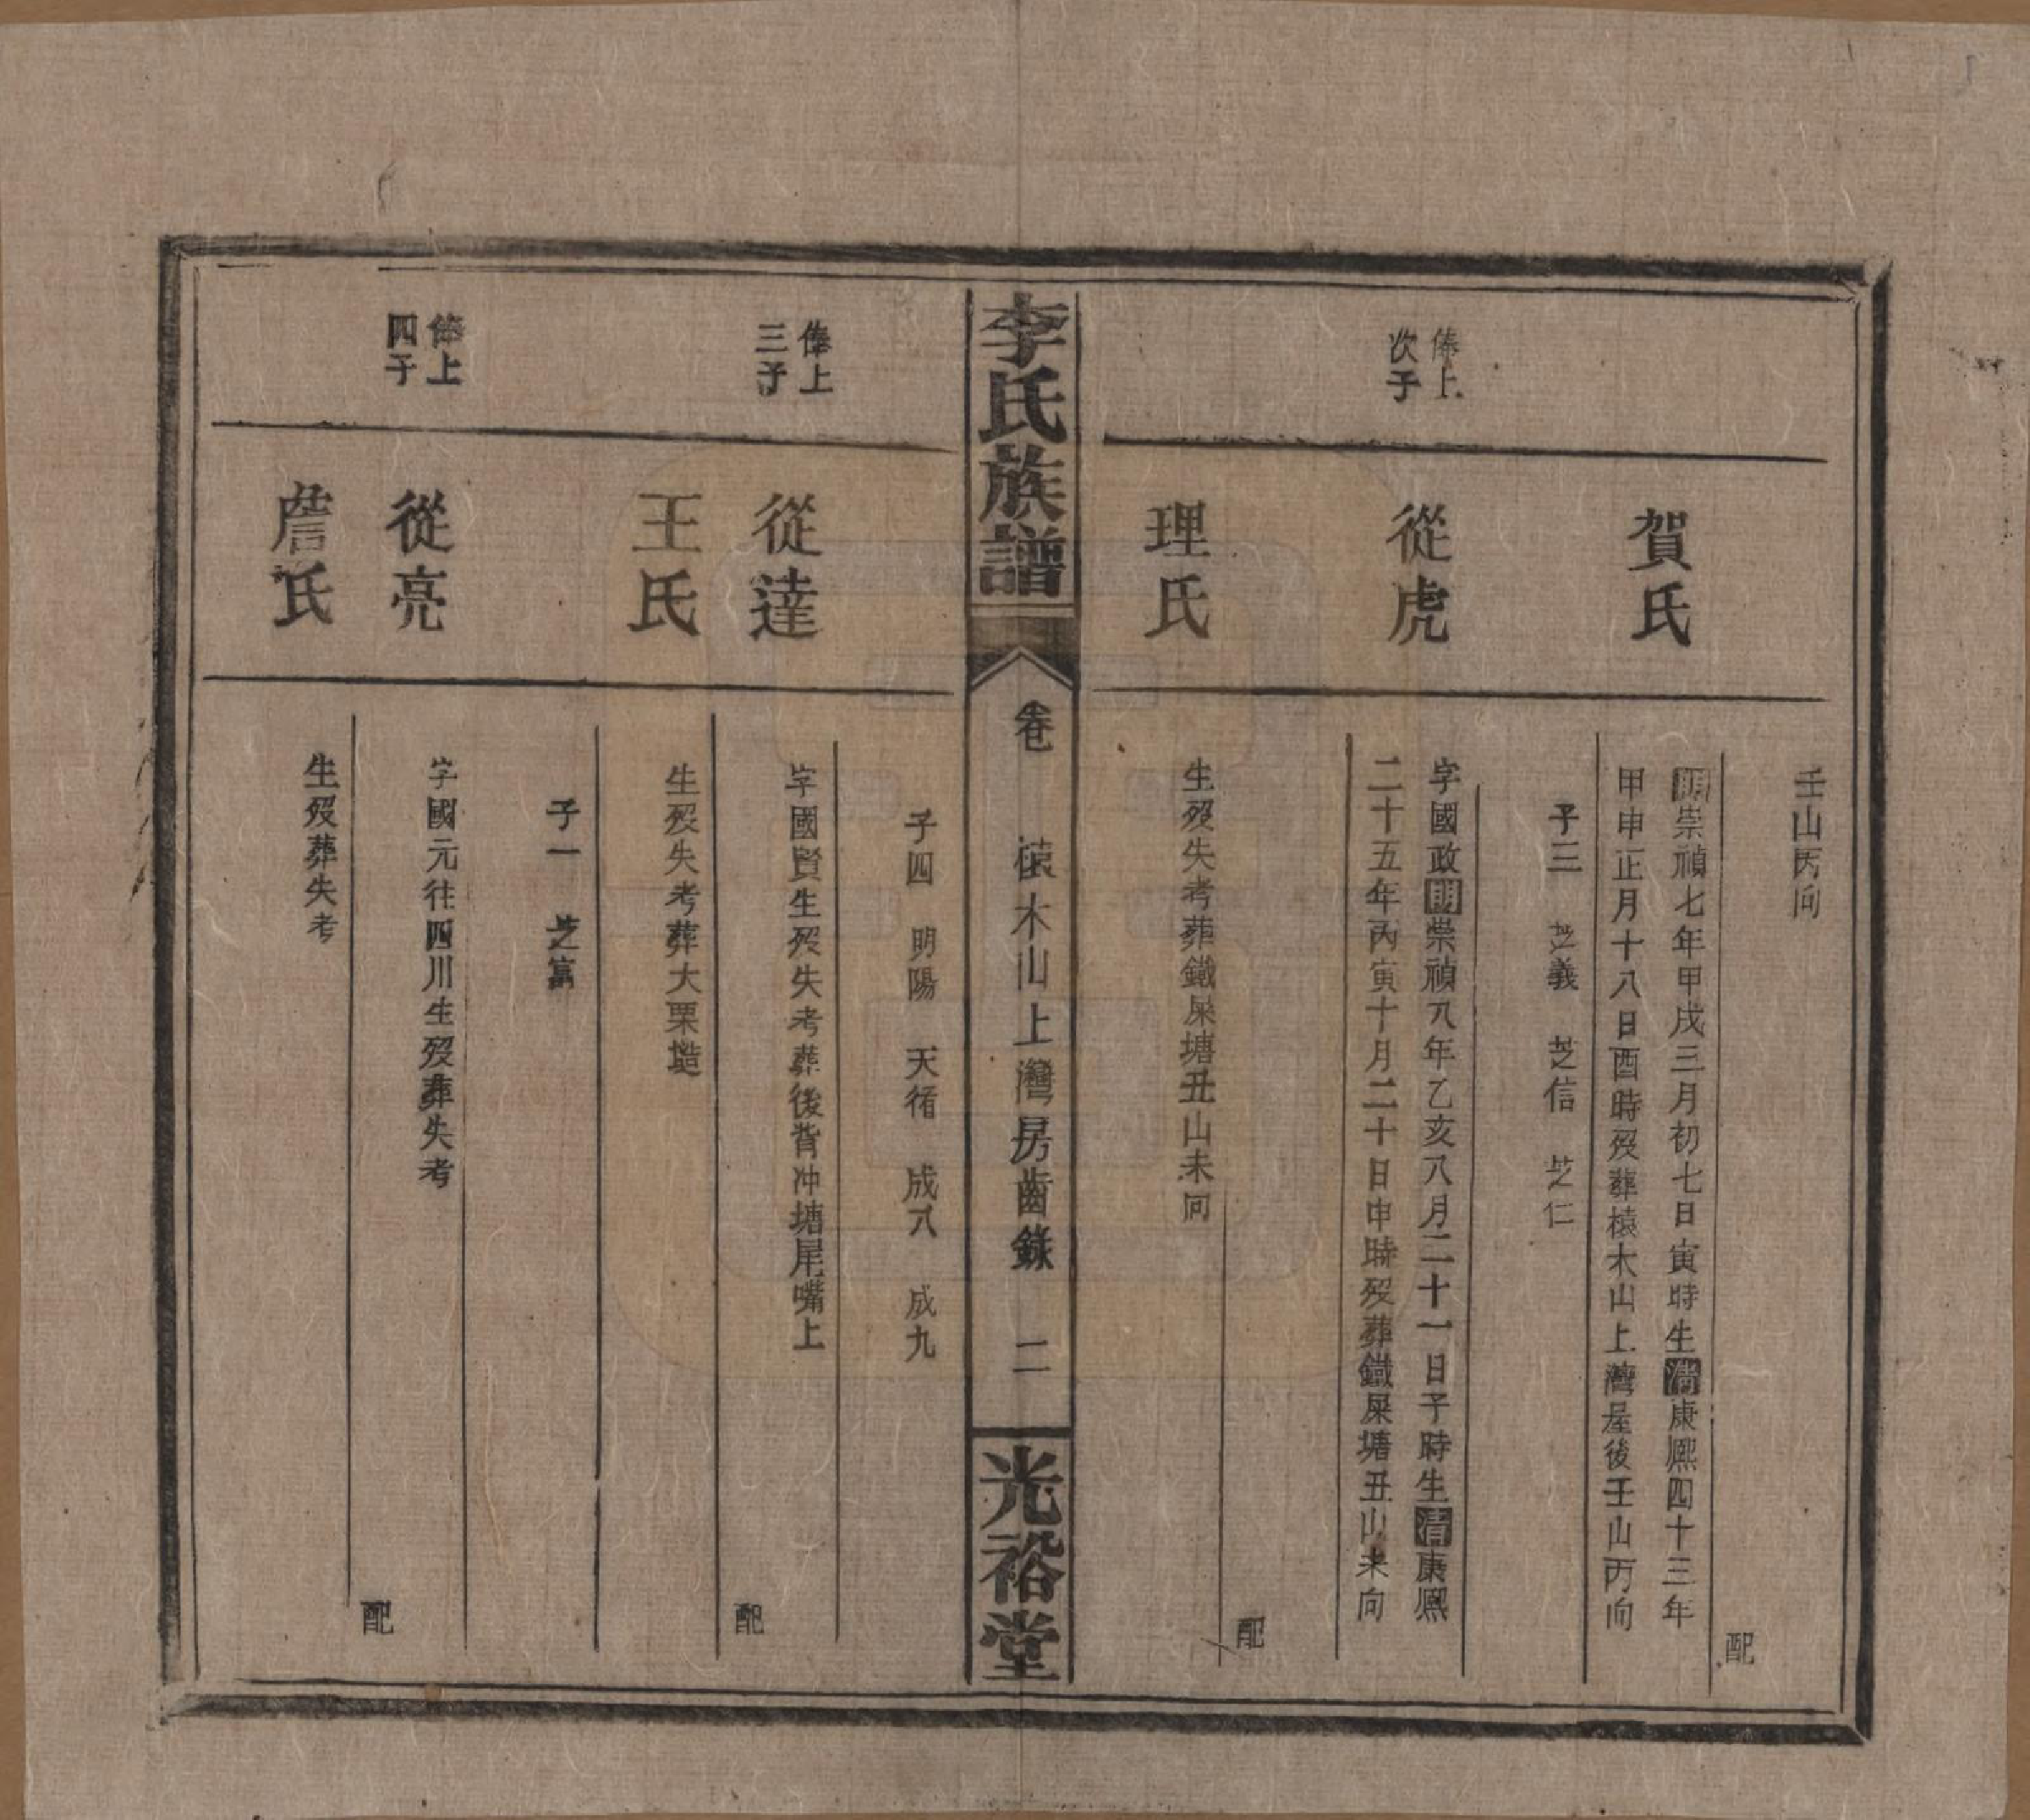 壬山丙向
配
賀氏
明崇禎七年甲戌三月初七日寅時生清康熙四十三年
甲申正月十八日酉時歿葬檺木山上灣屋後壬山丙向
子三　芝義　芝信　芝仁
俸上
次子
從虎
字國政明崇禎八年乙亥八月二十一日子時生清康熙
二十五年丙寅十月二十日申時歿葬鐵屎塘丑山未向
配
理氏
生歿失考葬鐵屎塘丑山未向
李氏族譜
卷　木山上灣房齒錄　二
光裕堂
子四　明陽　天衢　成八　成九
俸上
三子
從達
字國賢生歿失考葬後背冲塘尾嘴上
配
王氏
生歿失考葬大栗塏
子一　芝富
俸上
四子
從亮
字國元往四川生歿葬失考
配
詹氏
生歿葬失考